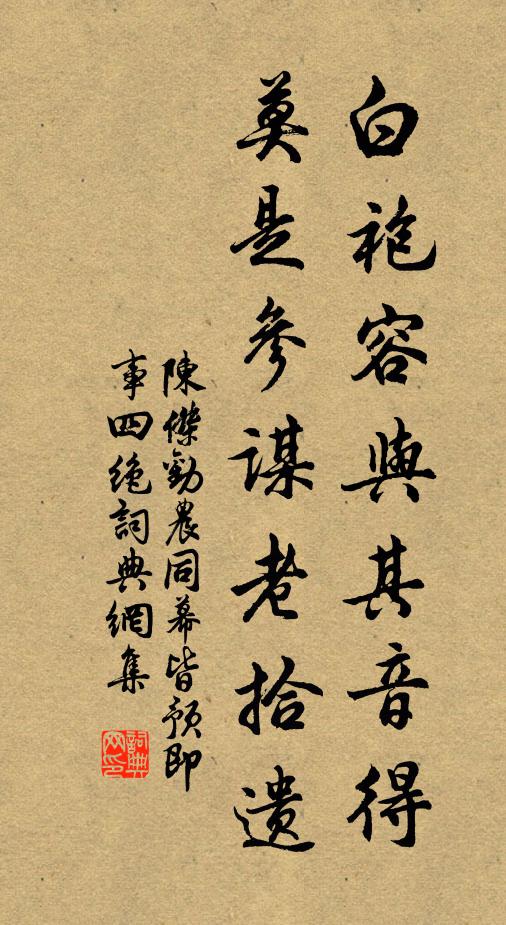 白袍容與其音得
莫是參謀老拾遺
陳傑勸農同幕皆預即
事四絶詞典網集
詞典
网印